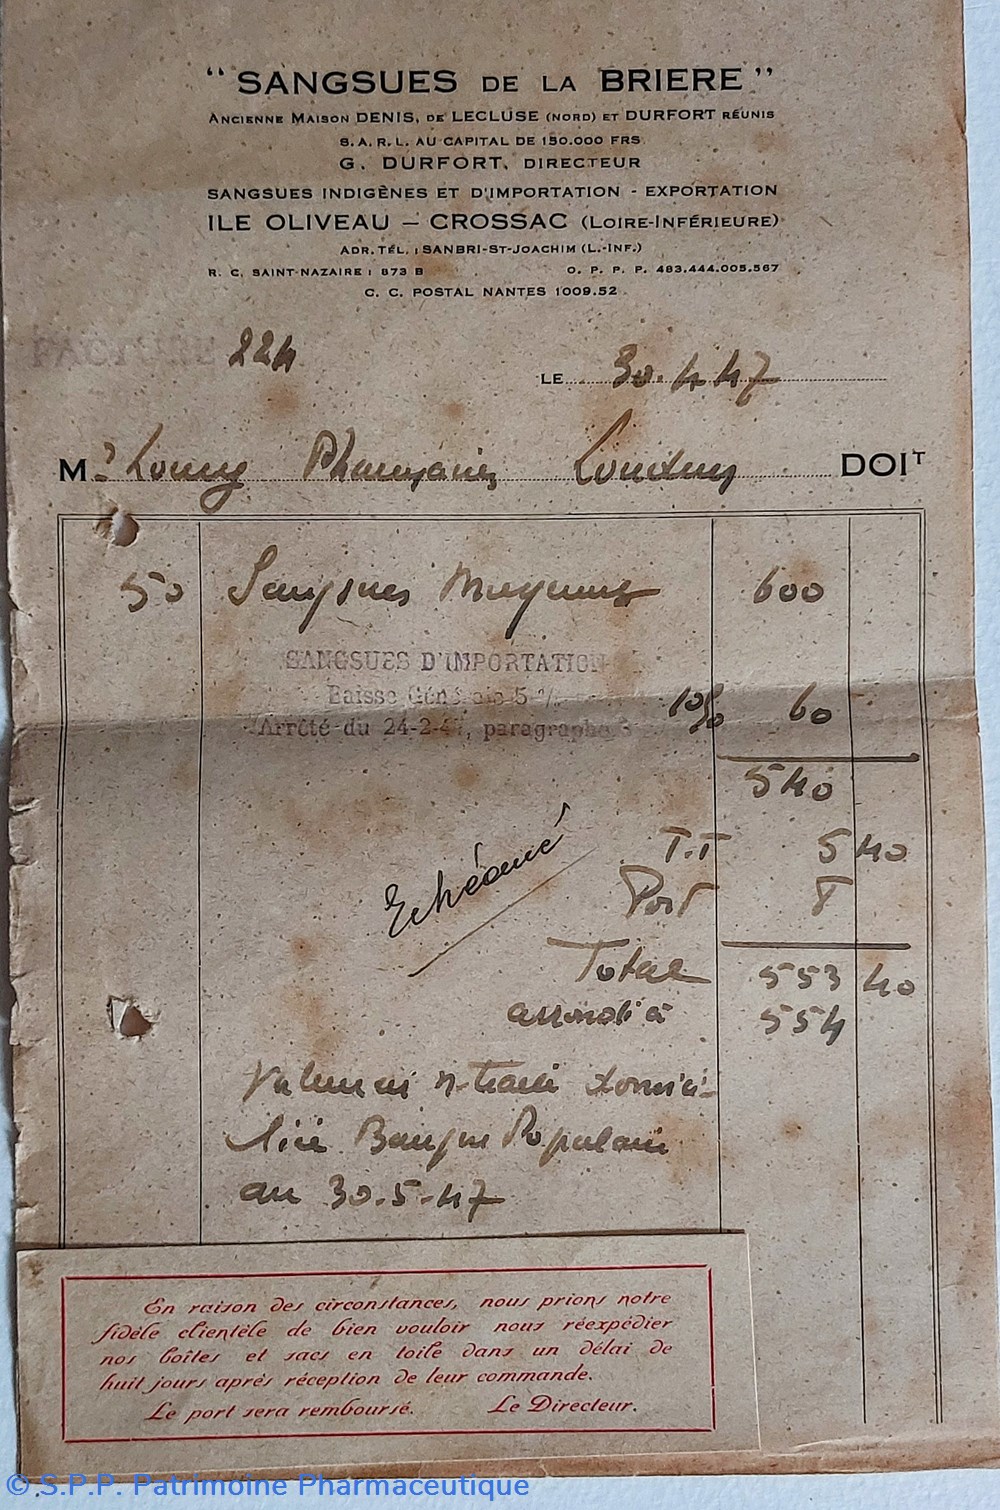 " SANGSUES DE LA BRIERE "
ANCIENNE MAISON DENIS, DE LECLUSE (NORD) ET DURFORT RÉUNIS
S.A.R.L. AU CAPITAL DE 150.000 FRS
G. DURFORT, DIRECTEUR
SANGSUES INDIGÈNES ET D'IMPORTATION - EXPORTATION
ILE OLIVEAU - CROSSAC (LOIRE-INFÉRIEURE)
ADR. TÉL. : SANBRI-ST-JOACHIM (L.-INF.)
R. C. SAINT-NAZAIRE : 873 B O. P. P. P. 483.444.005.567
C. C. POSTAL NANTES 1009.52
FACTURE 224
LE 30.4.47
M. Pharmacien DOIT
50 Sangsues Moyennes 600
SANGSUES D'IMPORTATION
Baisse Générale 5 %
Arrêté du 24-2-47, paragraphe 3 10% 60
540
T.T 5 40
Port 8
Total 553 40
arrondi à 554
Echéance
Valeur en n. traite domici-
liée Banque Populaire
au 30.5.47
En raison des circonstances, nous prions notre
fidèle clientèle de bien vouloir nous réexpédier
nos boîtes et sacs en toile dans un délai de
huit jours après réception de leur commande.
Le port sera remboursé. Le Directeur.
© S.P.P. Patrimoine Pharmaceutique